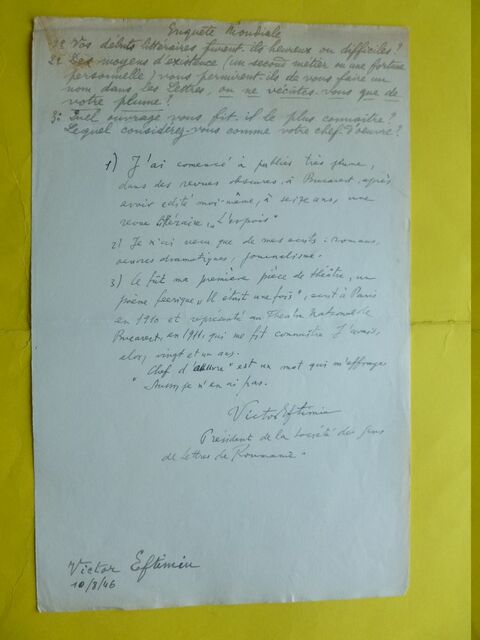 Enquête Mondiale
1º Vos débuts littéraires furent-ils heureux ou difficiles?
2º Des moyens d'existence (un second métier ou une fortune
personnelle) vous permirent-ils de vous faire un
nom dans les Lettres, ou ne vécûtes-vous que de
votre plume?
3º Quel ouvrage vous fit-il le plus connaître?
Lequel considérez-vous comme votre chef-d'oeuvre?
1) J'ai comencé à publier très jeune,
dans des revues obscures, à Bucarest, après
avoir edité moi-même, à seize ans, une
revue littéraire,
2) Je n'ai vecu que de mes ecrits: romans,
oeuvres dramatiques, journalisme.
3) Ce fût ma première pièce de théâtre, un
poème feerique „Il était une fois", ecrit à Paris
en 1910 et représenté au Théatre National de
Bucarest, en 1911, qui me fit connaître. J'avais,
alors, vingt et un ans.
"Chef d'oeuvre" est un mot qui m'effraye.
Aussi je n'en ai pas.
Victor Eftimiu
Président de la Société des Gens
de Lettres de Roumanie
Victor Eftimiu
10/8/46